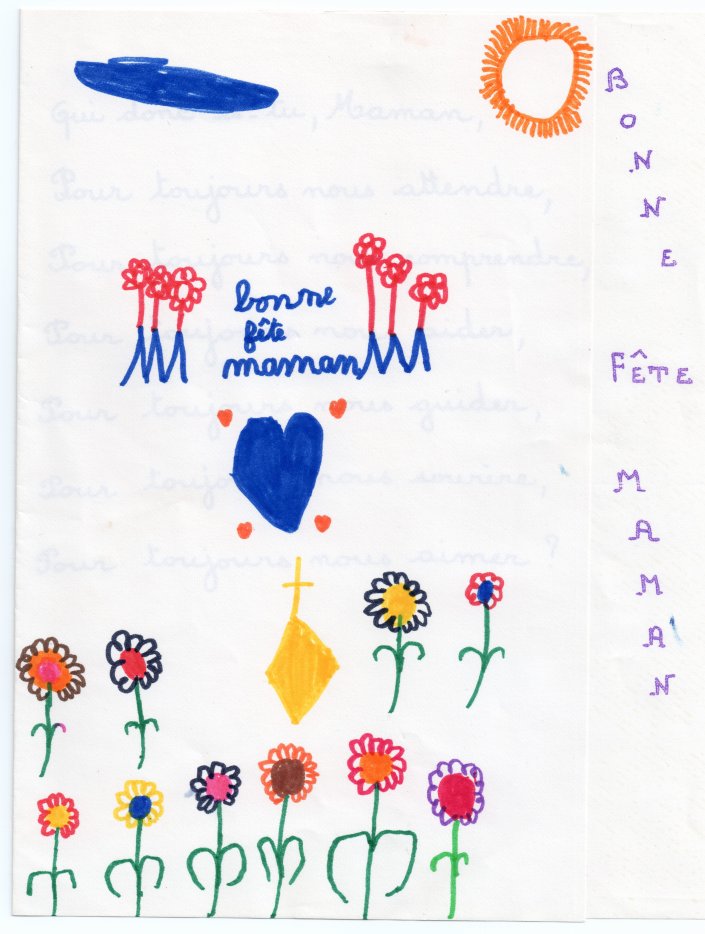 Qui donc tu, Maman,
Pour toujours nous attendre,
Pour toujours nous comprendre,
Pour toujours nous aider,
Pour toujours nous guider,
Pour toujours nous sourire,
Pour toujours nous aimer ?
bonne
fête
maman
BONNE
FÊTE
MAMAN